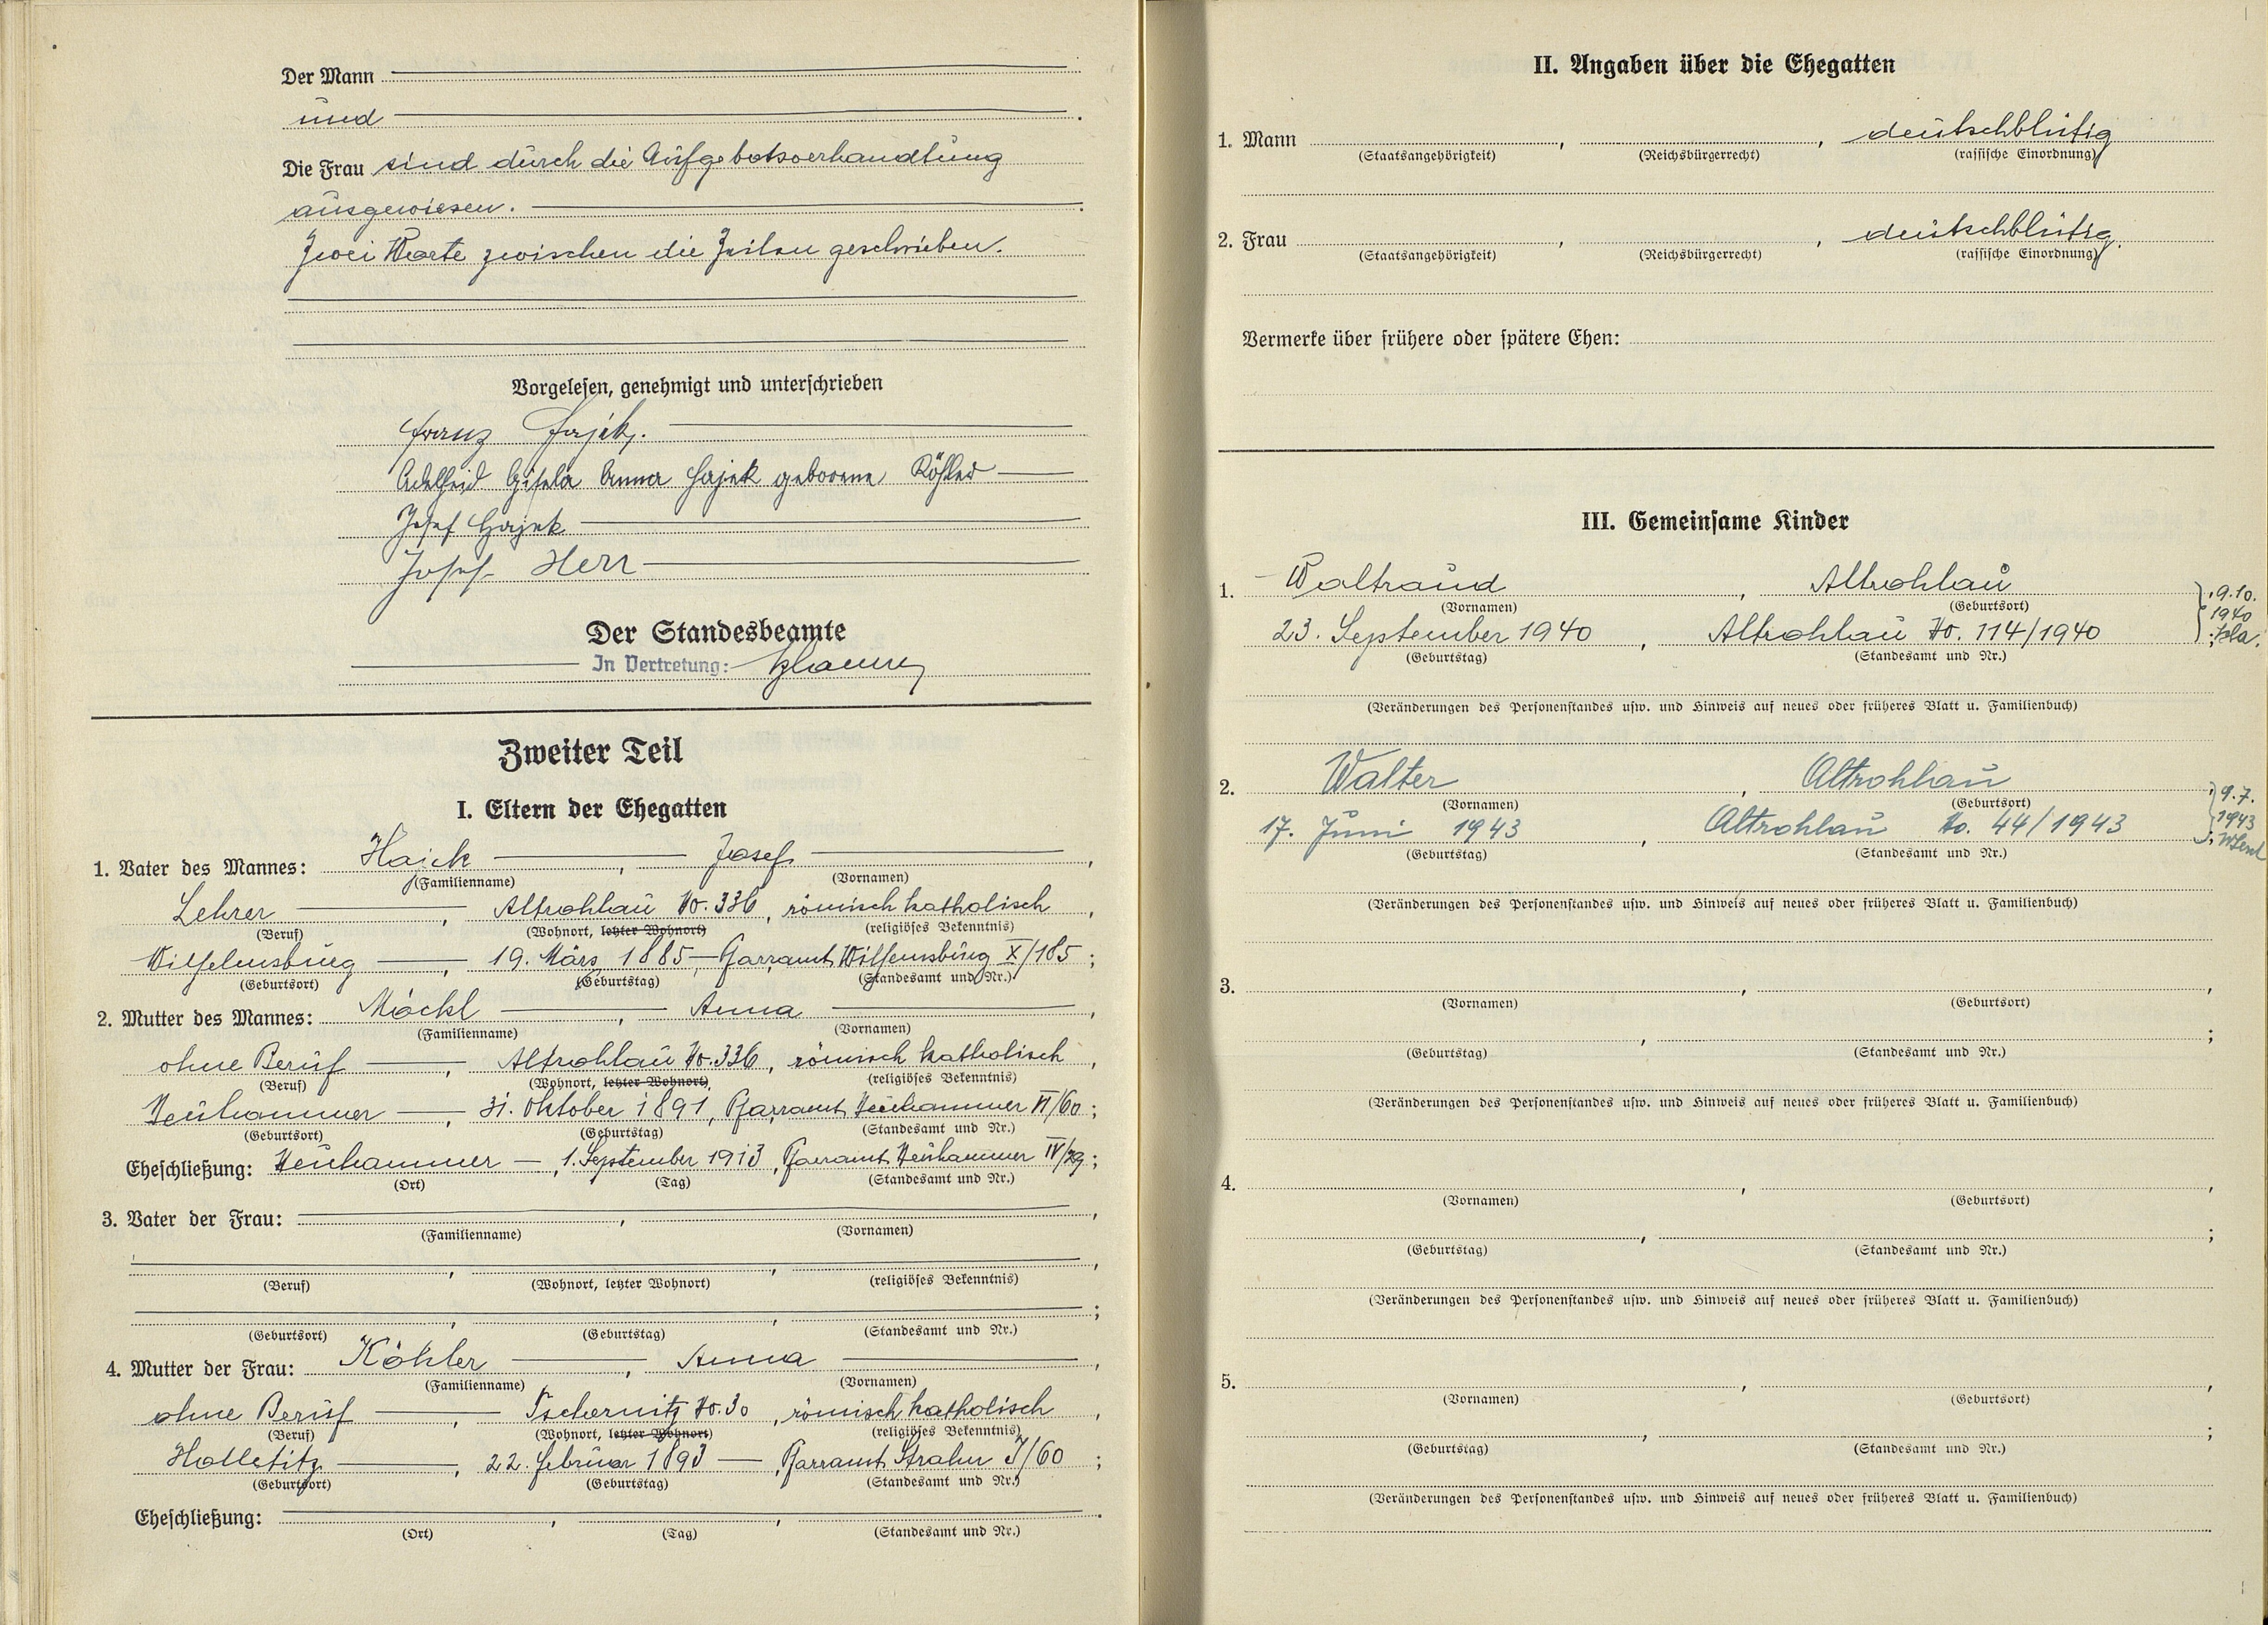 Der Mann
und
Die Frau sind durch die Aufgebotsverhandlung
ausgewiesen.
Zwei Worte zwischen die Zeilen geschrieben.
Vorgelesen, genehmigt und unterschrieben
Franz Hajek.
Adelheid Gisela Anna Hajek geborene Köhler
Josef Hajek
Josef Herr
Der Standesbeamte
In Vertretung:
Zweiter Teil
I. Eltern der Ehegatten
1. Vater des Mannes: Hajek, Josef,
(Familienname) (Vornamen)
Lehrer, Altrohlau No. 336, römisch katholisch,
(Beruf) (Wohnort, letzter Wohnort) (religiöses Bekenntnis)
19. März 1885, Pfarramt X/185;
(Geburtsort) (Geburtstag) (Standesamt und Nr.)
2. Mutter des Mannes: Möckl, Anna,
(Familienname) (Vornamen)
ohne Beruf, Altrohlau No. 336, römisch katholisch,
(Beruf) (Wohnort, letzter Wohnort) (religiöses Bekenntnis)
Neuhammer, 31. Oktober 1891, Pfarramt Neuhammer VI/60;
(Geburtsort) (Geburtstag) (Standesamt und Nr.)
Eheschließung: Neuhammer, 1. September 1913, Pfarramt Neuhammer IV/29;
(Ort) (Tag) (Standesamt und Nr.)
3. Vater der Frau: , ,
(Familienname) (Vornamen)
, , ,
(Beruf) (Wohnort, letzter Wohnort) (religiöses Bekenntnis)
, , ;
(Geburtsort) (Geburtstag) (Standesamt und Nr.)
4. Mutter der Frau: Köhler, Anna,
(Familienname) (Vornamen)
ohne Beruf, Tschernitz No. 30, römisch katholisch,
(Beruf) (Wohnort, letzter Wohnort) (religiöses Bekenntnis)
Holletitz, 22. Februar 1893, Pfarramt Strahn I/60;
(Geburtsort) (Geburtstag) (Standesamt und Nr.)
Eheschließung: , , .
(Ort) (Tag) (Standesamt und Nr.)
II. Angaben über die Ehegatten
1. Mann , , deutschblütig
(Staatsangehörigkeit) (Reichsbürgerrecht) (rassische Einordnung)
2. Frau , , deutschblütig.
(Staatsangehörigkeit) (Reichsbürgerrecht) (rassische Einordnung)
Vermerke über frühere oder spätere Ehen:
III. Gemeinsame Kinder
1. Waltraud, Altrohlau
(Vornamen) (Geburtsort)
23. September 1940, Altrohlau No. 114/1940
(Geburtstag) (Standesamt und Nr.)
9.10.
1940
(Veränderungen des Personenstandes usw. und Hinweis auf neues oder früheres Blatt u. Familienbuch)
2. Walter, Altrohlau
(Vornamen) (Geburtsort)
17. Juni 1943, Altrohlau No. 44/1943
(Geburtstag) (Standesamt und Nr.)
9.7.
1943
(Veränderungen des Personenstandes usw. und Hinweis auf neues oder früheres Blatt u. Familienbuch)
3. , ,
(Vornamen) (Geburtsort)
, ;
(Geburtstag) (Standesamt und Nr.)
(Veränderungen des Personenstandes usw. und Hinweis auf neues oder früheres Blatt u. Familienbuch)
4. , ,
(Vornamen) (Geburtsort)
, ;
(Geburtstag) (Standesamt und Nr.)
(Veränderungen des Personenstandes usw. und Hinweis auf neues oder früheres Blatt u. Familienbuch)
5. , ,
(Vornamen) (Geburtsort)
, ;
(Geburtstag) (Standesamt und Nr.)
(Veränderungen des Personenstandes usw. und Hinweis auf neues oder früheres Blatt u. Familienbuch)